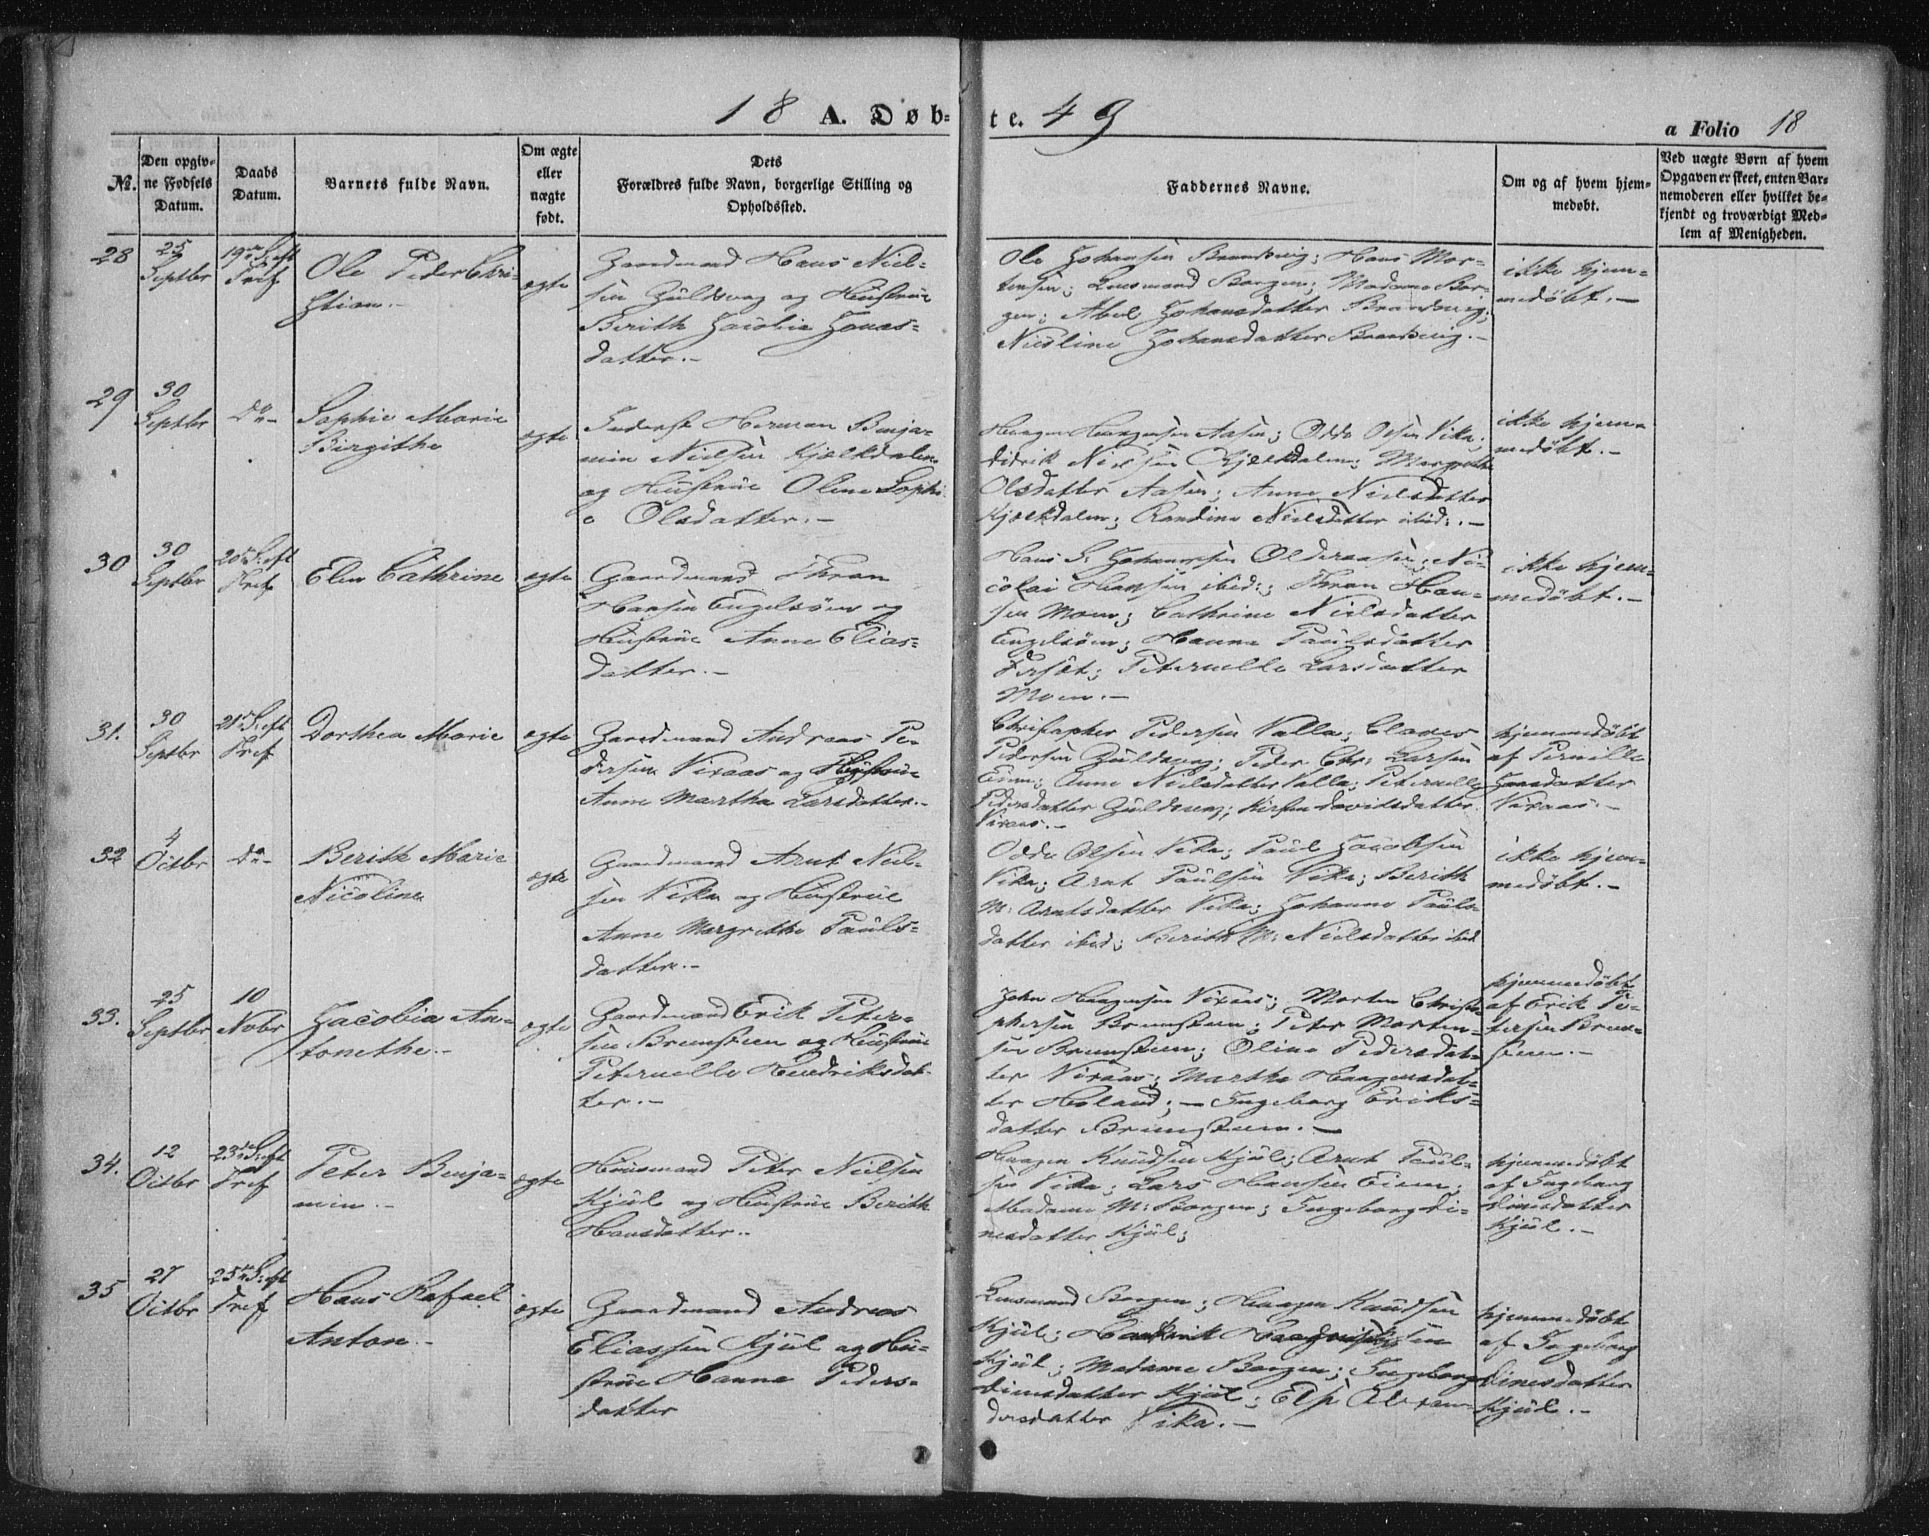 18 A. Døb-te. 49
a Folio 18
№.
Den opgiv-
ne Fødsels
Datum.
Daabs
Datum.
Barnets fulde Navn.
Om ægte
eller
nægte
født.
Dets
Forældres fulde Navn, borgerlige Stilling og
Opholdssted.
Faddernes Navne.
Om og af hvem hjem-
medøbt.
Ved uægte Børn af hvem
Opgaven er skeet, enten Bar-
nemoderen eller hvilket be-
kjendt og troværdigt Med-
lem af Menigheden.
28
25
Septbr
19de S: eft
Tref
Ole Peder Chri-
stian.-
ægte
Gaardmand Hans Niel-
sen Züldvog og Hüstrüe
Berith Jacobia Jonas-
datter.-
Ole Johansen Brandvig; Hans Mor-
tensen; Lensmand Borgen; Madame Bor-
gen; Abel Johansdatter Brandvig;
Nicoline Johansdatter Brandvig.-
ikke hjem-
medøbt.-
29
30
Septbr
Do-
Sophie Marie
Birgithe
ægte
Inderst Herman Benja-
min Nielsen Kjelkdalen
og Hüstrüe Olene Sophi-
e Olsdatter.-
Haagen Haagensen Aasen; Oddo Olsen Vika;
Didrik Nielsen Kjelkdalen; Margrethe
Olsdatter Aasen; Anne Nielsdatter
Kjelkdalen; Randine Nielsdatter ibid:.-
ikke hjem-
medøbt.-
30
30
Septbr
20de S: eft
Tref
Elen Cathrine
ægte
Gaardmand Thran
Hansen Engelsöen og
Hüstrüe Anne Elias-
datter.-
Hans S. Johannesen Olderaasen; Ni-
colai Hansen ibid:; Thran Han-
sen Moen; Cathrine Nielsdatter
Engelsöen; Hanna Paulsdatter
Forset; Peternelle Larsdatter
Moen.-
ikke hjem-
medøbt.-
31.
30
Septbr
21de S: eft
Tref
Dorthea Marie
ægte
Gaardmand Andreas Pe-
dersen Vixaas og Hüstrüe
Anne Martha Larsdatter.-
Christopher Pedersen Valla; Claves
Pedersen Züldvog; Peder Chr: Larsen
Eien; Anne Nielsdatter Valla; Peternelle
Pedersdatter Züldvog; Kirsten Davidsdatter
Vixaas.-
hjemmedøbt
af Pernille
Hansdatter
Vixaas.-
32
4
Octbr
Do-
Berith Marie
Nicoline
ægte
Gaardmand Arnt Niel-
sen Vika og Hüstrüe
Anne Margrethe Paüls-
datter.-
Oddo Olsen Vika; Paul Jacobsen
Vika; Arnt Paülsen Vika; Berith
M: Arntsdatter Vika; Johanne Paüls-
datter ibid; Berith M: Nielsdatter ibid
ikke hjem-
medøbt.-
33.
25
Septbr
10
Novbr
Jacobia An-
tonethe.-
ægte
Gaardmand Erik Peter-
sen Brunsteen og Hüstrüe
Peternelle Hendriksdat-
ter.-
John Haagensen Vixaas; Morten Christo-
phersen Brunsteen; Peter Morten-
sen Brunsteen; Oline Pedersdat-
ter Vixaas; Martha Haagensdat-
ter Holand;- Ingeborg Eriks-
datter Brunsteen.-
hjemmedøbt
af Erik Pe-
tersen Brun-
steen.-
34.
12
Octbr
23de S: eft
Tref
Peter Benja-
min.-
ægte
Hüusmand Peter Nielsen
Kjül og Hüstrüe Berith
Hansdatter.-
Haagen Knüdsen Kjül; Arnt Paul-
sen Vika; Lars Hansen Eien;
Madame M: Borgen; Ingeborg Di-
nesdatter Kjül;
hjemmedøbt
af Ingeborg
Dinesdatter
Kjül.-
35
27
Octbr
25de S: eft
Tref
Hans Rafael
Anton.-
ægte
Gaardmand Andreas
Eliassen Kjül og Hü-
strüe Hanna Peders-
datter
Lensmand Borgen; Haagen Knüdsen
Kjül;
Kjül; Madame Borgen; Ingeborg
Dinesdatter Kjül; Elsi Alexan-
dersdatter Vika.-
hjemmedøbt
af Ingeborg
Dinesdatter
Kjül.-